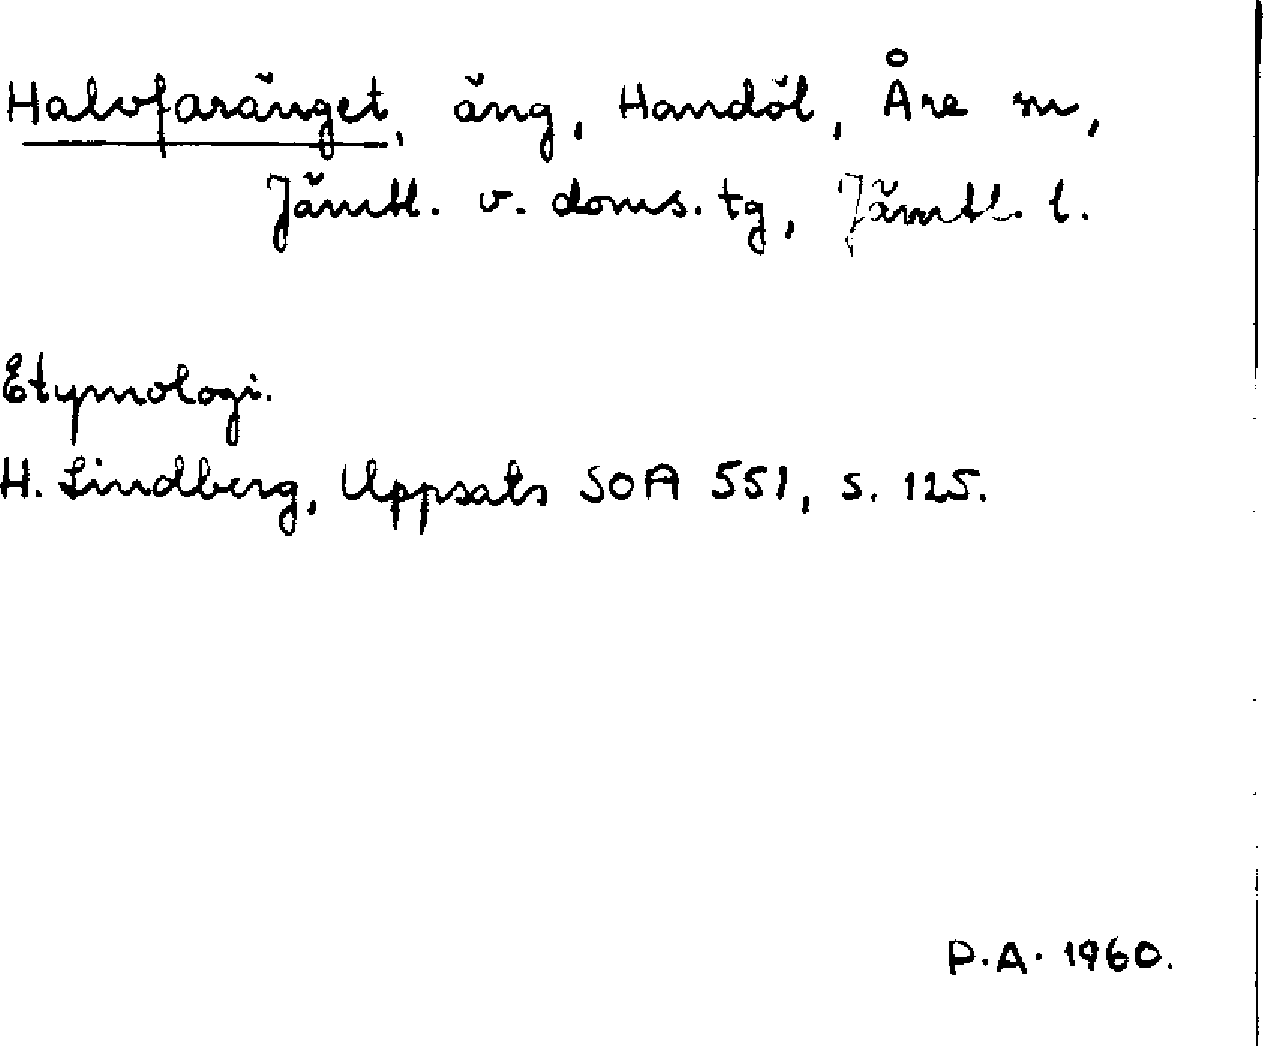 Halvfaränget, äng, Handöl, Åre sn,
Jämtl. v. doms. tg, Jämtl. l.
Etymologi.
H. Lindberg, Uppsats SOA 551, s. 125.
P.A. 1960.